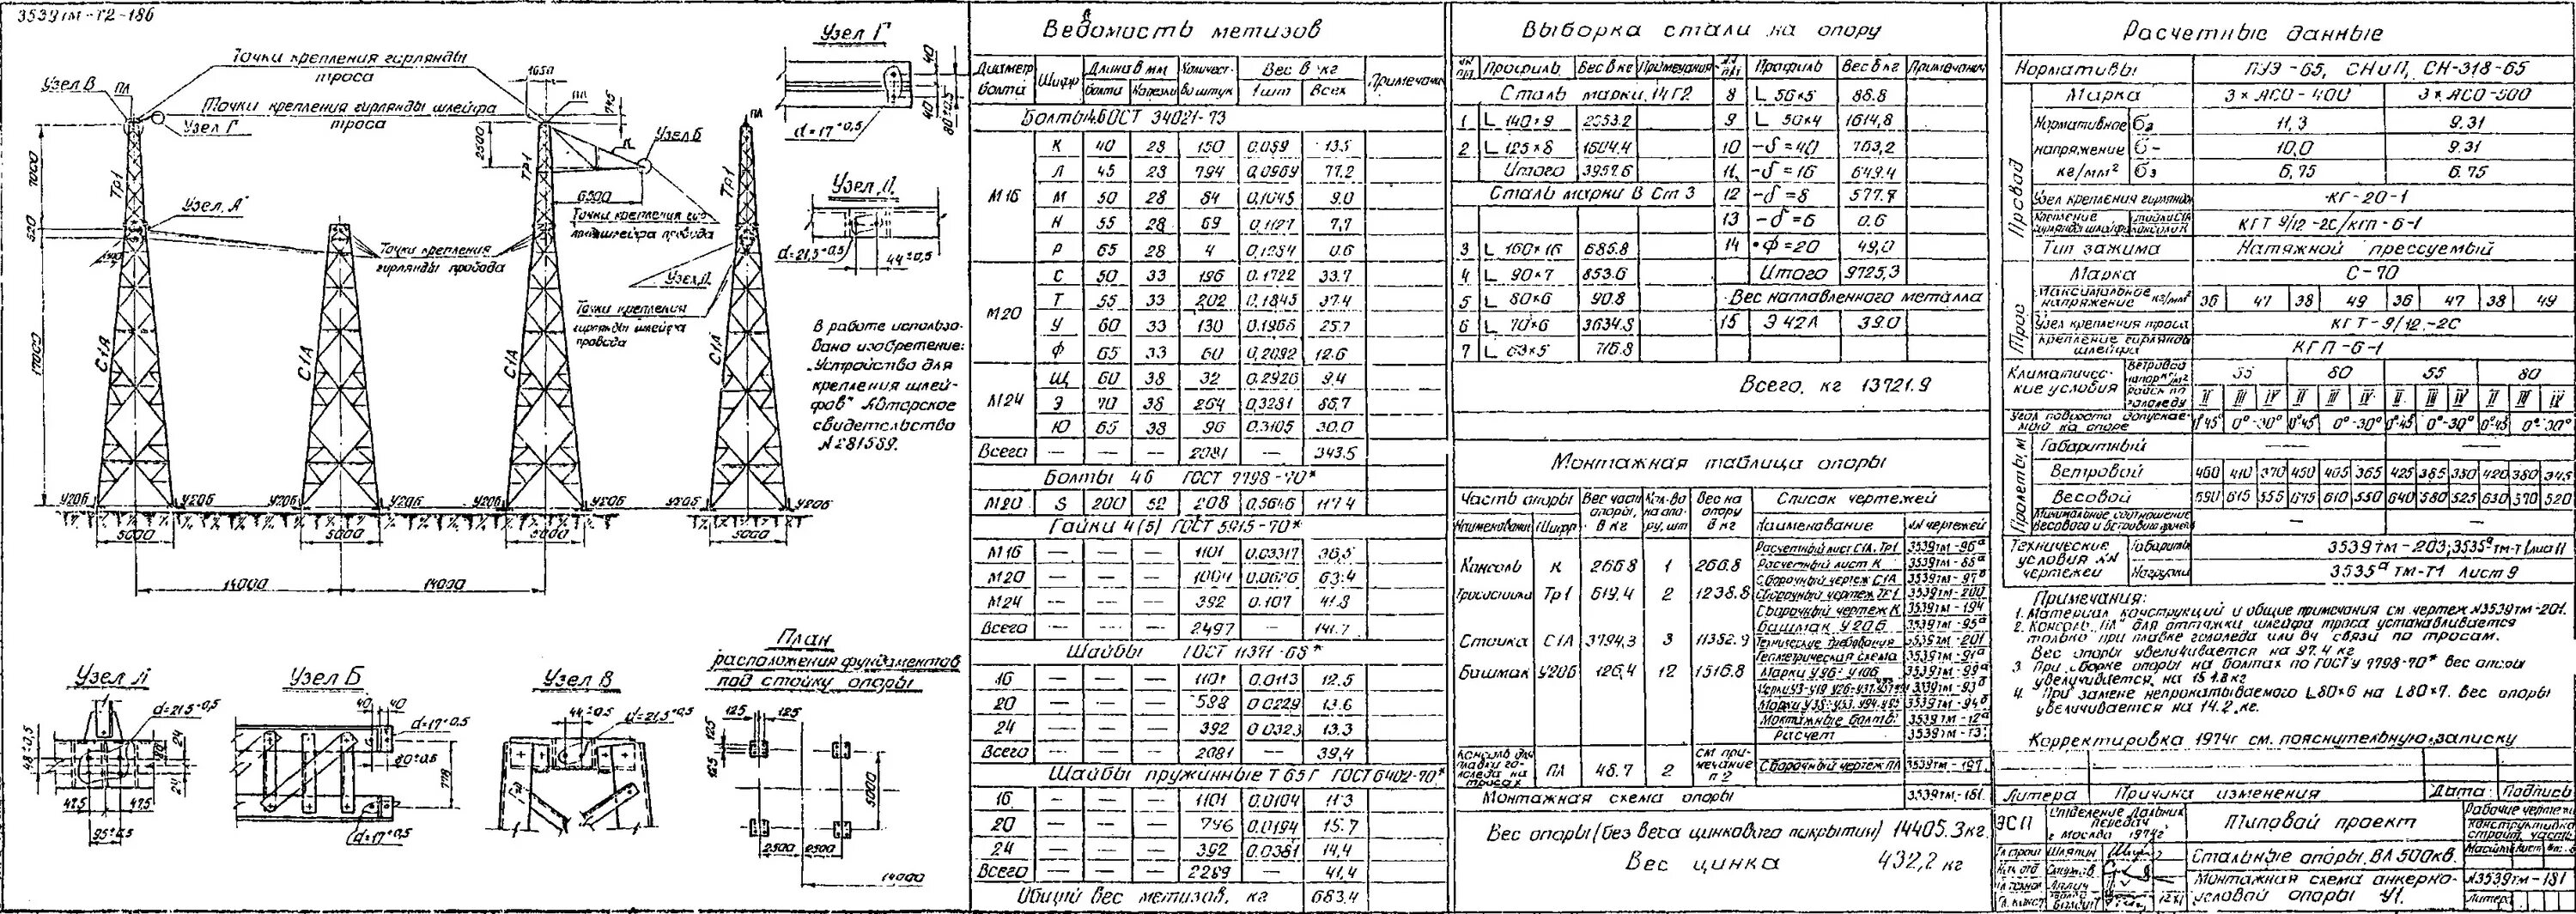 3539тм-Т2-186
Узел В
ПЛ
Точки крепления гирлянды
троса
Точки крепления гирлянды шлейфа
троса
Узел Г
1650
ПЛ
2500
К
Узел Б
6500
ПЛ
7000
Тр1
Тр1
Тр1
520
Узел А
Точки крепления
гирлянды провода
Узел Д
Точки крепления
гирлянды шлейфа
провода
17000
С1А
С1А
С1А
С1А
У206 У206 У206 У206 У206 У206 У206 У206
5000 5000 5000 5000
14000 14000
Узел Г
40
40
80±0,5
d=17+0,5
Узел Д
d=21,5+0,5
44±0,5
В работе использо-
вано изобретение:
"Устройство для
крепления шлей-
фов" Авторское
свидетельство
№281589.
Узел А
d=21,5+0,5
48±0,5
24
24
47,5 47,5
95±0,5
Узел Б
40 40
d=17+0,5
80±0,5
778
d=17+0,5
Узел В
44±0,5
d=21,5+0,5
План
расположения фундаментов
под стойку опоры
125 125
125
125
5000
2500 2500
14000
Ведомость метизов
Диаметр болта Шифр Длина в мм Количест-во штук Вес в кг Примечание
болта 1шт Всех
ГОСТ 34021-73
М16 К 40 28 150 0.089 13.5
Л 45 28 794 0.0969 77.2
М 50 28 84 0,1045 9.0
Н 55 28 69 0,1127 7,7
Р 65 28 4 0,1284 0.6
М20 С 50 33 196 0.1722 33.7
Т 55 33 202 0.1845 37.4
У 60 33 130 0.1968 25.7
Ф 65 33 60 0,2092 12.6
М24 Щ 60 38 32 0.2926 9,4
Э 70 38 264 0,3281 86,7
Ю 65 38 96 0.3105 30.0
Всего — — — 2081 — 343.5
Болты 46 ГОСТ 7798-70*
М20 S 200 52 208 0,5646 117.4
Гайки 4(5) ГОСТ 5915-70*
М16 — — — 1101 0.03317 36,5
М20 — — — 1004 63.4
М24 — — — 392 0.107 41.8
Всего — — — 2497 — 141.7
Шайбы ГОСТ 11371-68*
16 — — — 1101 0.0113 12.5
20 — — — 588 0.0229 13.6
24 — — — 392 0.0323 13.3
Всего — — — 2081 — 39,4
Шайбы пружинные Т 65Г ГОСТ 6402-70*
16 — — — 1101 0.0104 11.3
20 — — — 796 0.0194 15.7
24 — — — 392 0.0381 14,4
Всего — — — 2289 — 41,4
Общий вес метизов, кг 683,4
Выборка стали на опору
Профиль Вес в кг Примечания Профиль Вес в кг Примечания
Сталь марки 14Г2 8 L 56×5 88.8
1 L 140×9 2353.2 9 L 50×4 1614,8
2 L 125×8 1604.4 10 -δ=40 763,2
Итого 3957.6 11 -δ=16 649.4
Сталь марки В Ст 3 12 -δ=8 577.7
13 -δ=6 0.6
3 L 160×16 685.8 14 •ф=20 49,0
4 L 90×7 853.6 Итого 9725,3
5 L 80×6 90.8 Вес наплавленного металла
6 L 70×6 3634.8 15 Э 42А 39.0
7 L 63×5 716.8
Всего, кг 13721.9
Монтажная таблица опоры
Часть опоры Вес части опоры, в кг Кол-во на опору, шт Вес на опору в кг Список чертежей
Наименование Шифр Наименование №№ чертежей
Расчетный лист С1А, Тр1 3539тм-96а
Консоль К 266.8 1 266.8 Расчетный лист К
Сборочный чертеж С1А
Тросостойка Тр1 619,4 2 1238,8 Сборочный чертеж Тр1 3539тм-200
Сборочный чертеж К 3539тм-194
Башмак У206
Стойка С1А 3794,3 3 11382.9 Технические требования 3539тм-201
Геометрическая схема 3539тм-91а
Башмак У206 126,4 12 1516.8
Монтажные болты 3539тм-12а
Расчет 3539тм-Т3
Консоль для плавки гололеда на тросах ПЛ 48.7 2 см. примечание п 2 Сборочный чертеж ПЛ 3539тм-197
Монтажная схема опоры 3539тм-181
Вес опоры (без веса цинкового покрытия) 14405.3 кг
Вес цинка 432,2 кг
Расчетные данные
Нормативы ПУЭ-65, СНиП, СН-318-65
Провод
Марка 3×АСО-400 3×АСО-500
Нормативное 11,3 9.31
напряжение σ- 10,0 9.31
кг/мм² σэ 6,75 6.75
Узел крепления гирлянды КГ-20-1
КГТ 9/12-2С/КГП-6-1
Тип зажима Натяжной прессуемый
Трос
Марка С-70
Максимальное напряжение кг/мм² 36 47 38 49 36 47 38 49
Узел крепления троса КГТ-9/12-2С
Крепление гирлянды шлейфа КГП-6-1
Климатичес-кие условия Ветровой напор кг/м² 55 80 55 80
Район по гололеду II III IV II III IV II III IV II III IV
Угол поворота допускае-мый на опоре 0°-45° 0°-30° 0°-45° 0°-30° 0°-45° 0°-30° 0°-45° 0°-30°
Пролеты, м
Габаритный — —
Ветровой 460 410 370 450 405 365 425 385 350 420 380 345
Весовой 690 615 555 675 610 550 640 580 525 630 570 520
Минимальное соотношение весового и ветрового пролета — —
Технические условия №№ чертежей Габариты 3539тм-203; 3535а тм-Т1 лист 11
Нагрузки 3535а тм-Т1 Лист 9
Примечания:
1. Материал конструкций и общие примечания см. чертеж №3539тм-201.
2. Консоль "ПЛ" для оттяжки шлейфа троса устанавливается
только при плавке гололеда или вч связи по тросам.
Вес опоры увеличивается на 97.4 кг
3. При сборке опоры на болтах по ГОСТу 7798-70* вес опоры
увеличивается на 151.8 кг
4. При замене непрокатываемого L80×6 на L80×7. вес опоры
увеличивается на 14.2 кг.
Корректировка 1974г см. пояснительную записку
Литера Причина изменения Дата Подпись
ЭСП Отделение дальних передач г Москва 1974г Типовой проект Рабочие чертежи
Стальные опоры ВЛ 500кв.
Монтажная схема анкерно-
угловой опоры У1.
№3539тм-181
Литера